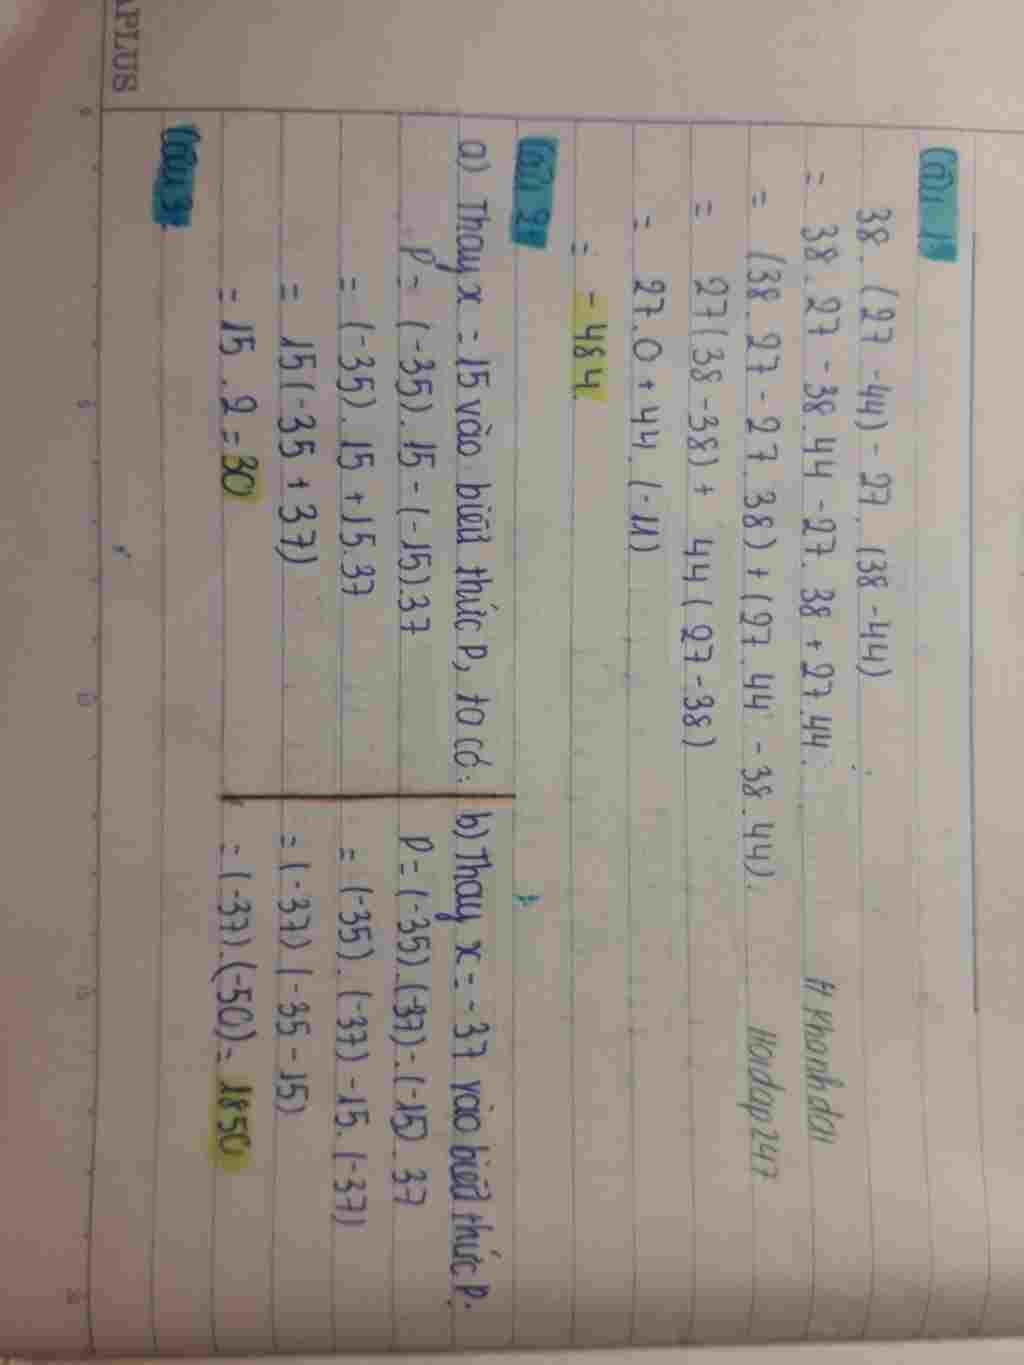 APLUS
Câu 1:
38. (27 - 44) - 27. (38 - 44)
= 38. 27 - 38. 44 - 27. 38 + 27.44.
= (38. 27 - 27. 38) + (27. 44 - 38. 44).
= 27(38 - 38) + 44 ( 27 - 38)
= 27.0 + 44. (-11)
= - 484.
# Khanhdai
Hoidap247
Câu 2:
a) Thay x = 15 vào biểu thức P, ta có:
P = (-35). 15 - (-15).37
= (-35). 15 + 15.37
= 15(-35 + 37)
= 15 . 2 = 30
b) Thay x = -37 vào biểu thức P.
P = (-35).(-37) - (-15). 37
= (-35). (-37) - 15. (-37)
= (-37) (-35 - 15)
= (-37).(-50) = 1850
Câu 3:
0
5
10
15
20